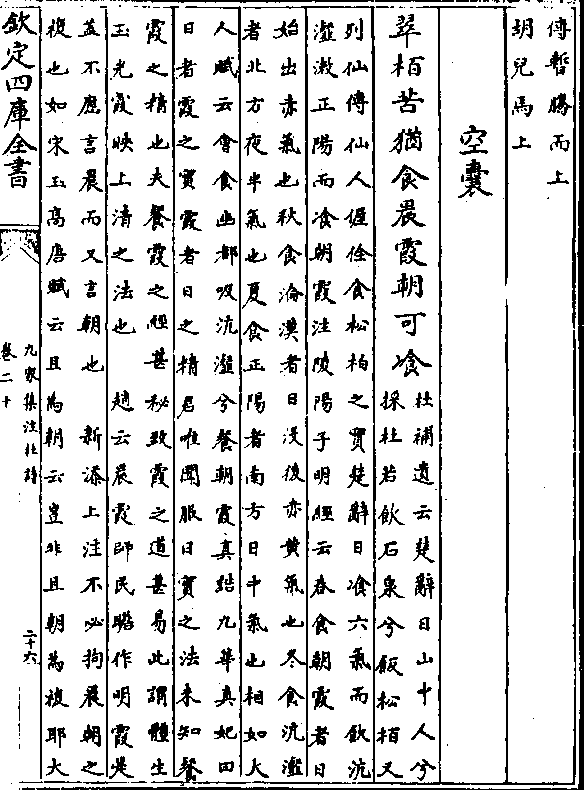 傳暫騰而上
胡兒馬上
空囊
翠柏苦猶食晨霞朝可飡
杜補遺云楚辭曰山中人兮
採杜若飲石泉兮飯松柏又
列仙傳仙人偓佺食松柏之實楚辭曰飡六氣而飲沆
瀣漱正陽而飡朝霞注陵陽子明經云春食朝霞者日
始出赤氣也秋食淪漢者日没後赤黄氣也冬食沆瀣
者北方夜半氣也夏食正陽者南方日中氣也相如大
人賦云會食幽都吸沆瀣兮餐朝霞真誥九華真妃曰
日者霞之實霞者日之精君唯聞服日實之法未知餐
霞之精也夫餐霞之經甚秘致霞之道甚易此謂體生
玉光霞映上清之法也　趙云晨霞師民瞻作明霞是
蓋不應言晨而又言朝也　新添上注不必拘晨朝之
複也如宋玉高唐賦云旦為朝云豈非旦朝為複耶大
欽定四庫全書
九家集注杜詩
卷二十
二十六